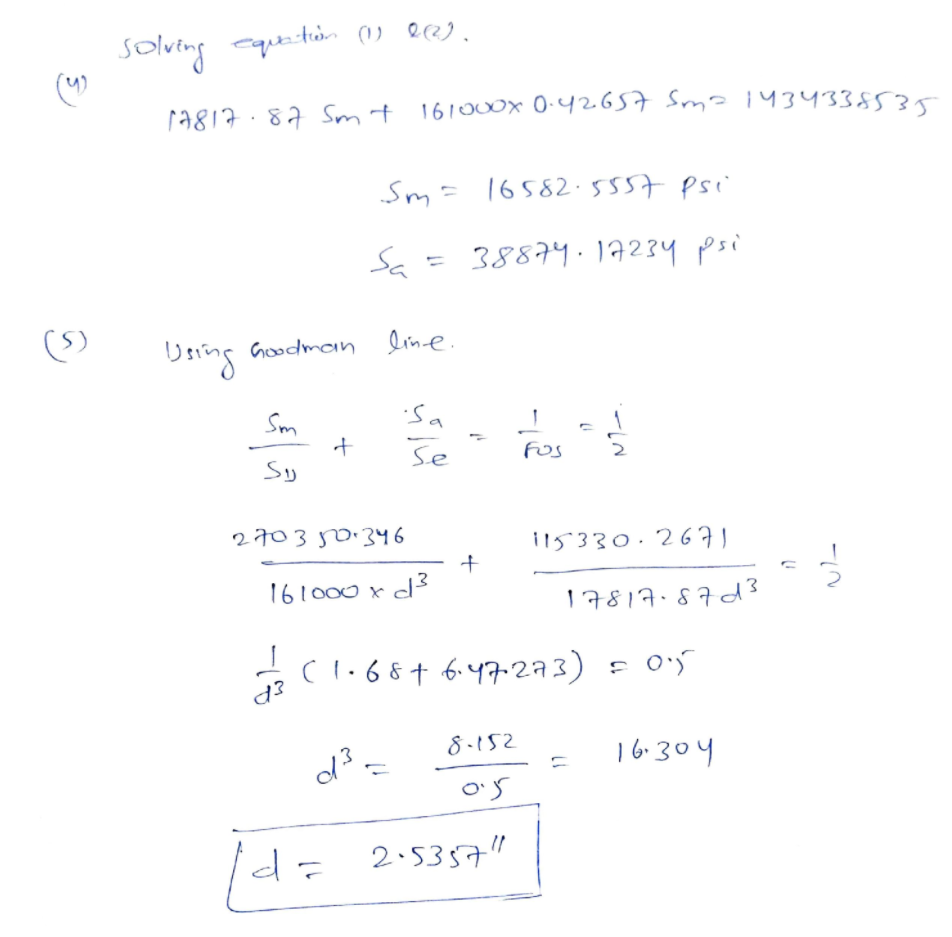 solving equation (1) &(2).
(4)
17817.87 Sm + 161000x 0.42657 Sm = 1434338535
Sm = 16582.5557 psi
Sa = 38874.17234 psi
(5) Using Goodman line.
Sm/Sy + Sa/Se = 1/FOS = 1/2
270350.346/161000 x d³ + 115330.2671/17817.87d³ = 1/2
1/d³ (1.68+ 6.47273) = 0.5
d³ = 8.152/0.5 = 16.304
d = 2.5357"